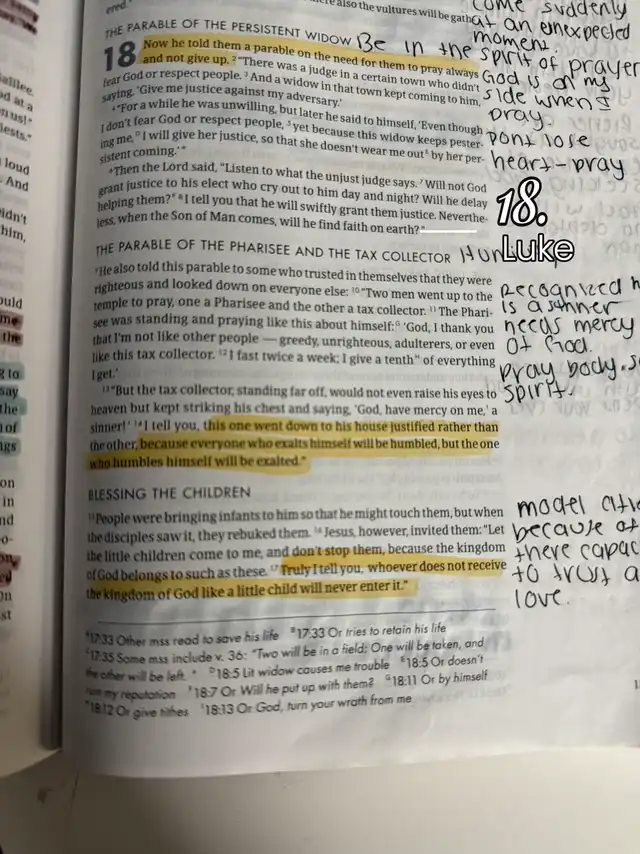 ered
ere also the vultures will be gath
THE PARABLE OF THE PERSISTENT WIDOW
18 Now he told them a parable on the need for them to pray always
and not give up. 2 "There was a judge in a certain town who didn't
fear God or respect people. 3 And a widow in that town kept coming to him,
saying, 'Give me justice against my adversary.'
4 "For a while he was unwilling, but later he said to himself, 'Even though
I don't fear God or respect people, 5 yet because this widow keeps pester-
ing me, D I will give her justice, so that she doesn't wear me out E by her per-
sistent coming.'"
6 Then the Lord said, "Listen to what the unjust judge says. 7 Will not God
grant justice to his elect who cry out to him day and night? Will he delay
helping them? F 8 I tell you that he will swiftly grant them justice. Neverthe-
less, when the Son of Man comes, will he find faith on earth?"
THE PARABLE OF THE PHARISEE AND THE TAX COLLECTOR
9 He also told this parable to some who trusted in themselves that they were
righteous and looked down on everyone else: 10 "Two men went up to the
temple to pray, one a Pharisee and the other a tax collector. 11 The Phari-
see was standing and praying like this about himself: G 'God, I thank you
that I'm not like other people — greedy, unrighteous, adulterers, or even
like this tax collector. 12 I fast twice a week; I give a tenth H of everything
I get.'
13 "But the tax collector, standing far off, would not even raise his eyes to
heaven but kept striking his chest and saying, 'God, have mercy on me, I a
sinner!' 14 I tell you, this one went down to his house justified rather than
the other, because everyone who exalts himself will be humbled, but the one
who humbles himself will be exalted."
BLESSING THE CHILDREN
15 People were bringing infants to him so that he might touch them, but when
the disciples saw it, they rebuked them. 16 Jesus, however, invited them: "Let
the little children come to me, and don't stop them, because the kingdom
of God belongs to such as these. 17 Truly I tell you, whoever does not receive
the kingdom of God like a little child will never enter it."
A 17:33 Other mss read to save his life B 17:33 Or tries to retain his life
C 17:35 Some mss include v. 36: "Two will be in a field: One will be taken, and
the other will be left." D 18:5 Lit widow causes me trouble E 18:5 Or doesn't
ruin my reputation F 18:7 Or Will he put up with them? G 18:11 Or by himself
H 18:12 Or give tithes I 18:13 Or God, turn your wrath from me
come suddenly
at an unexpected
moment.
Be in the spirit of prayer
God is on my
side when I
pray.
Dont lose
heart - pray
18.
Luke
Recognized
is a sinner
needs mercy
of God.
pray body.
spirit.
model
because of
there
to trust
love.